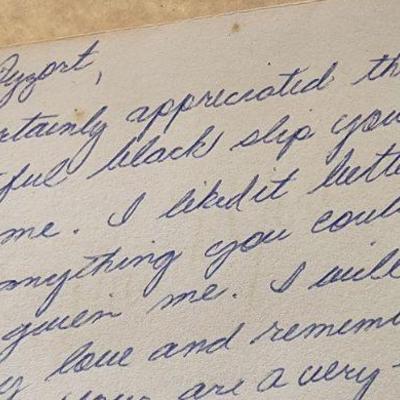 rtainly appreciated th
ful black slip you
me. I liked it bette
anything you coul
given me. I will
love and rememb
you are a very